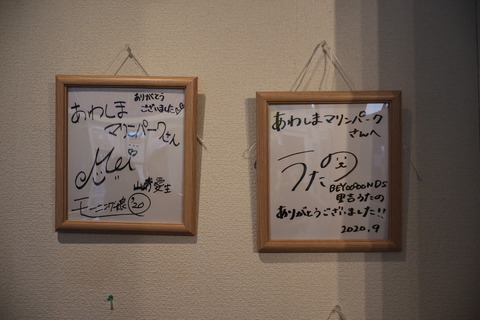 ありがとう
ございました
あわしま
マリンパークさん
Mei
山﨑愛生
モーニング娘 '20
あわしまマリンパーク
さんへ
うたの
BEYOOOOONDS
里吉うたの
ありがとうございました!!
2020.9